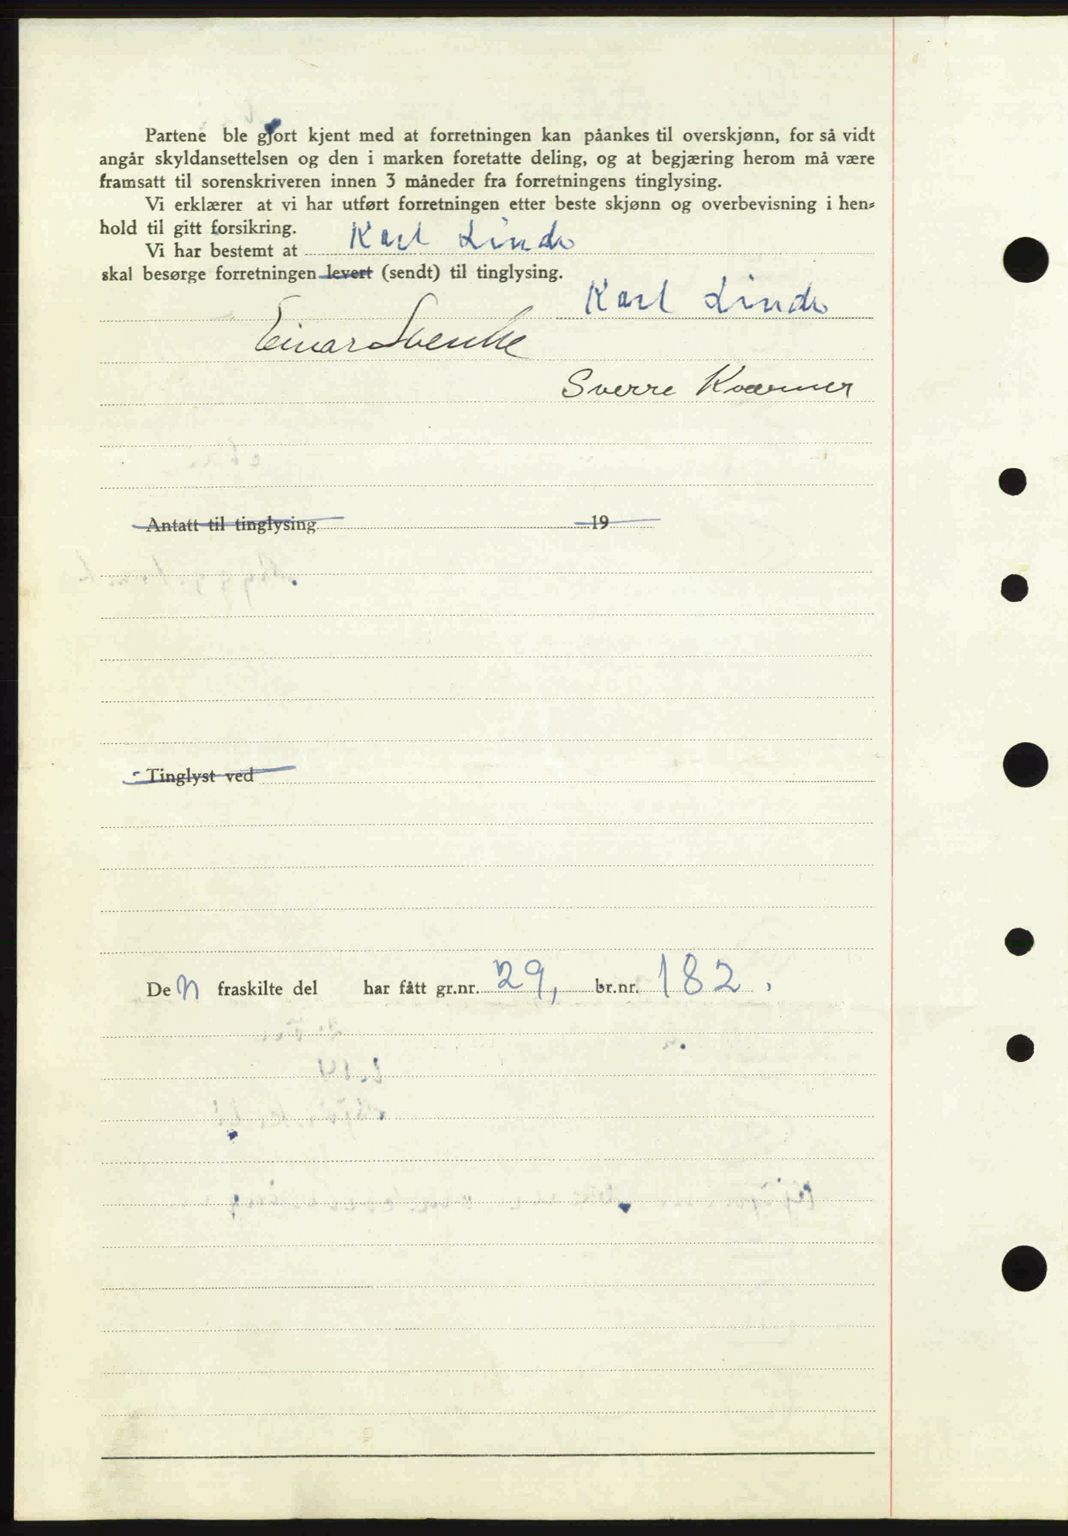 Partene ble gjort kjent med at forretningen kan påankes til overskjønn, for så vidt
angår skyldansettelsen og den i marken foretatte deling, og at begjæring herom må være
framsatt til sorenskriveren innen 3 måneder fra forretningens tinglysing.
Vi erklærer at vi har utført forretningen etter beste skjønn og overbevisning i hen-
hold til gitt forsikring.
Vi har bestemt at Karl Linde
skal besørge forretningen levert (sendt) til tinglysing.
Karl Linde
Einar
Sverre Kværner
Antatt til tinglysing 19
Tinglyst ved
Den fraskilte del har fått gr.nr. 29, br.nr. 182.